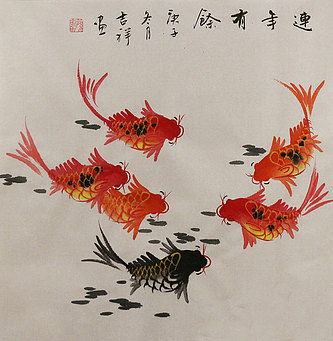 連年有餘
庚子
冬月
吉祥
畫